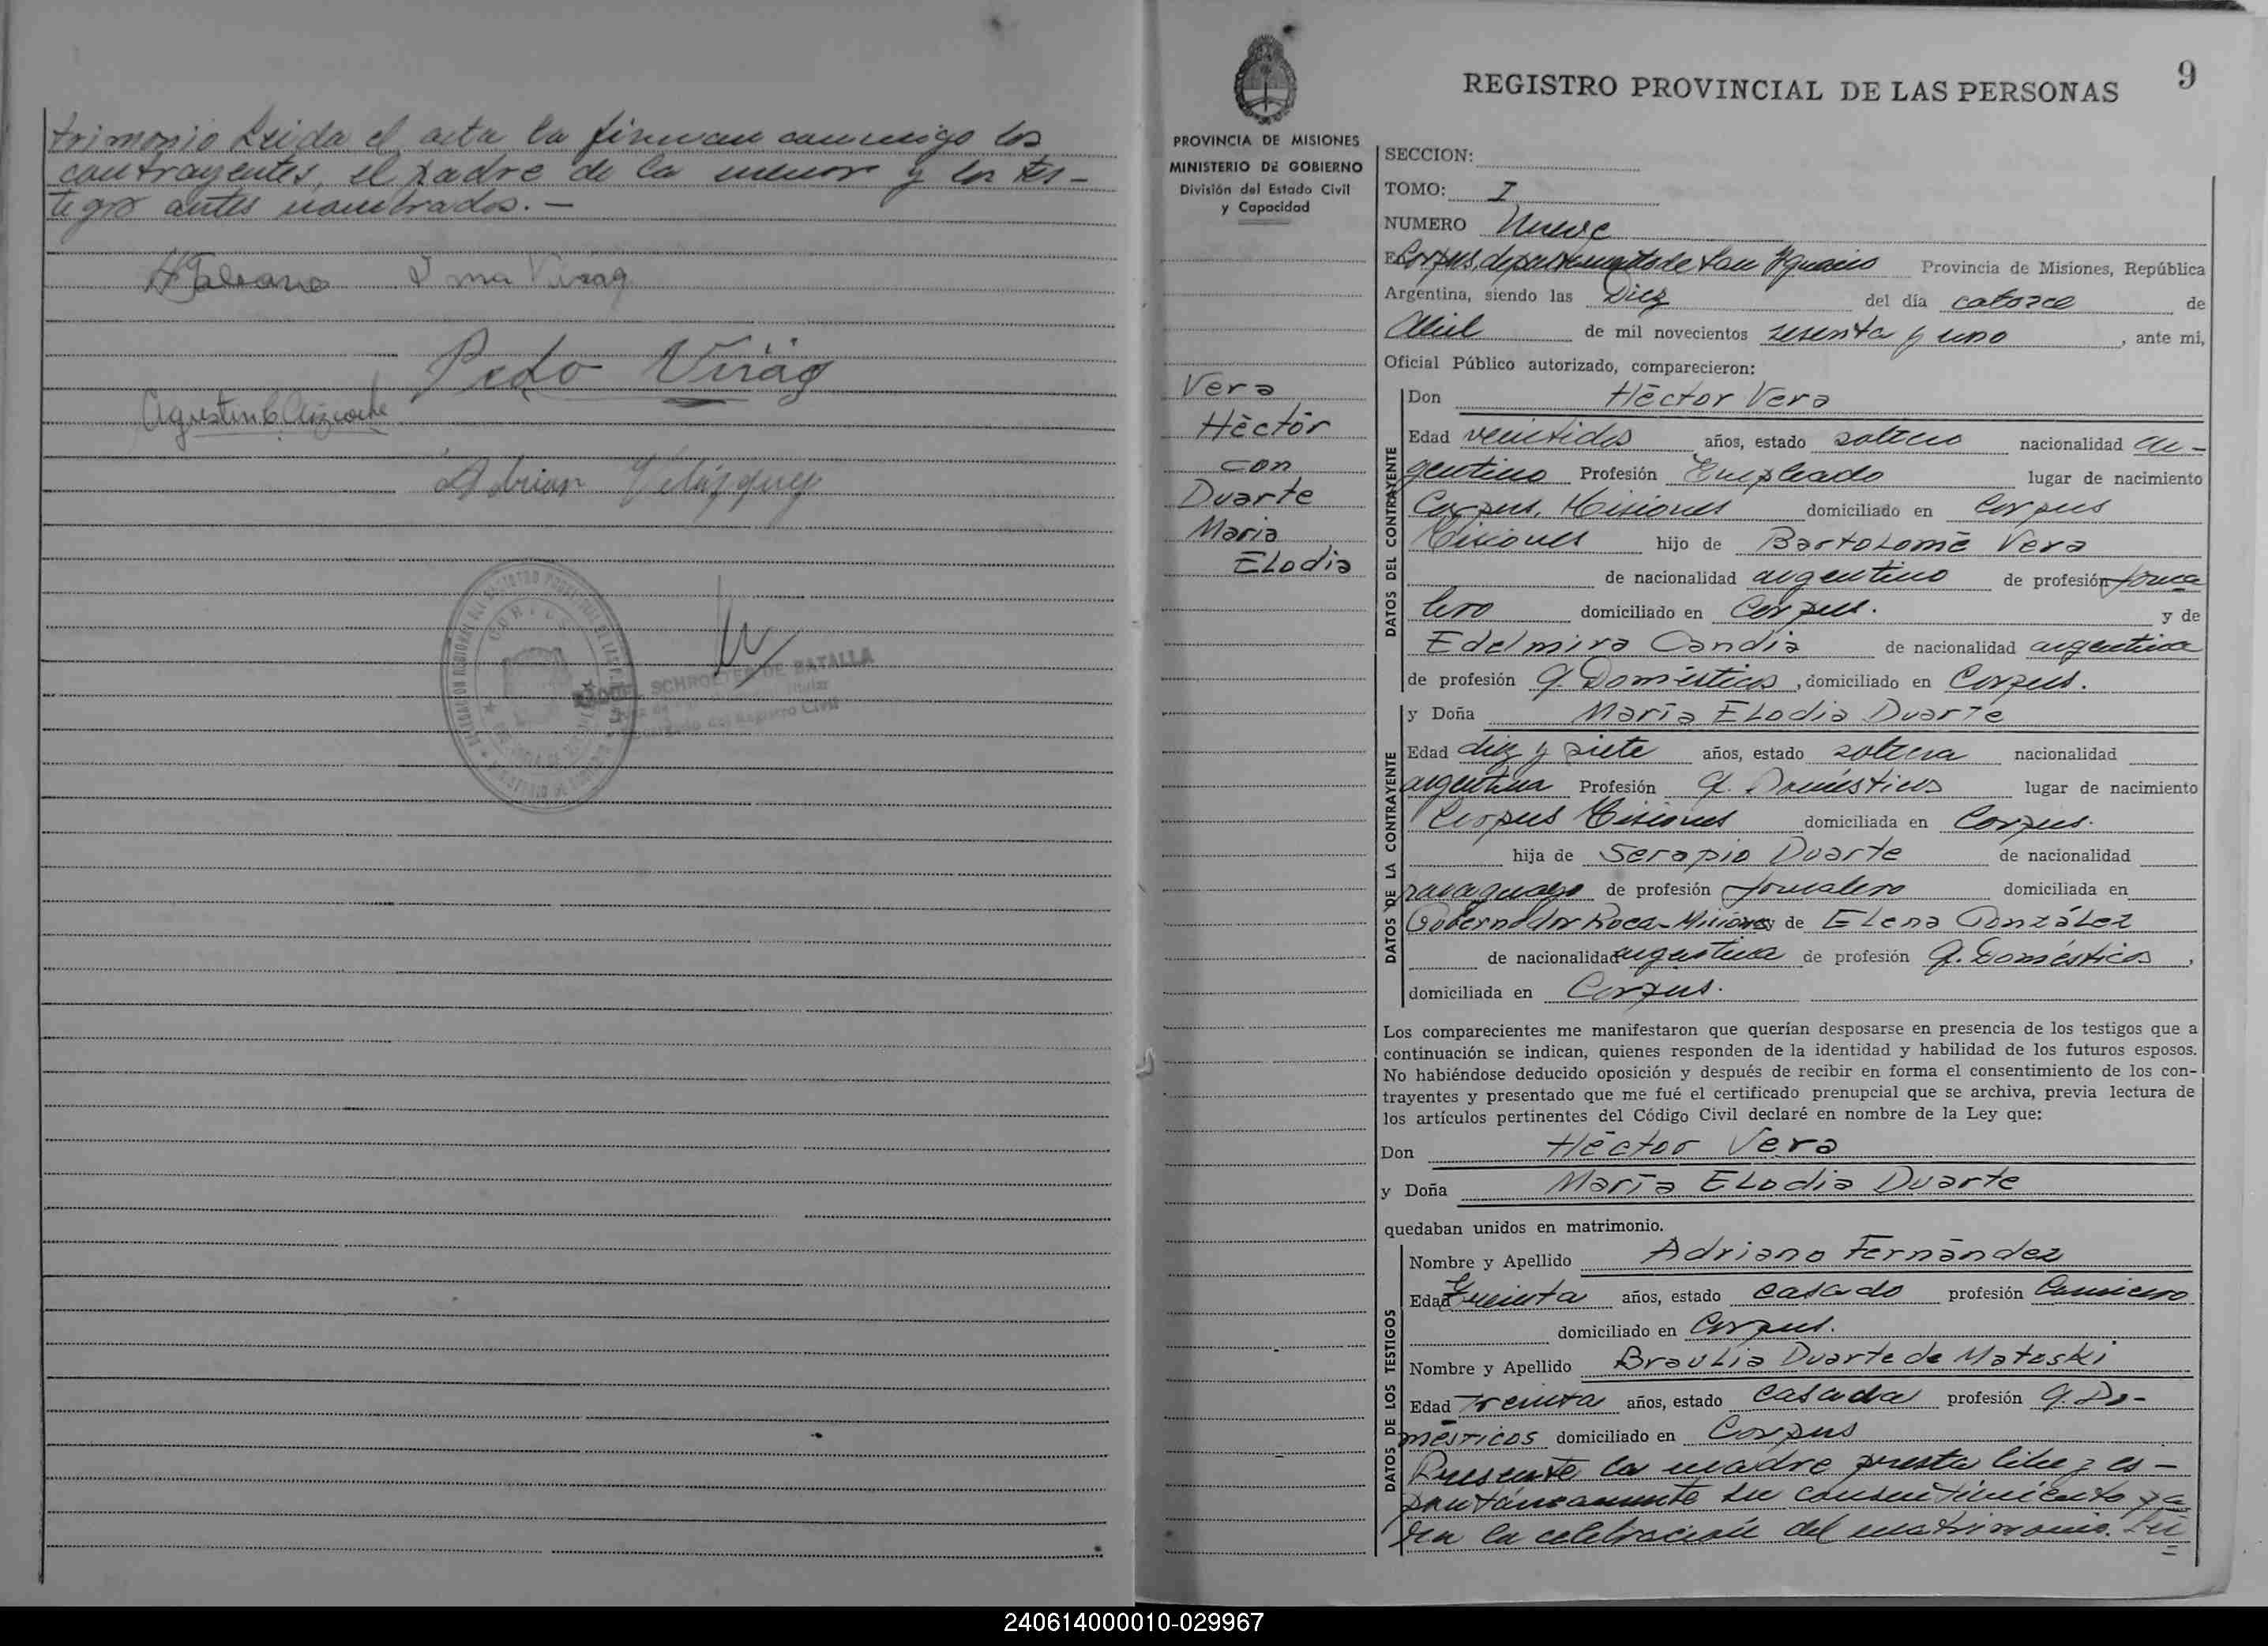 trimonio Leida el acta la firman conmigo los
contrayentes, el padre de la menor y los tes-
tigos antes nombrados. —
Irma Virag
Pedo Virág
Agustin
Adrian Velázquez
CORPUS
SCHROETER DE BATALLA
Encargado del Registro Civil
9
REGISTRO PROVINCIAL DE LAS PERSONAS
PROVINCIA DE MISIONES
MINISTERIO DE GOBIERNO
División del Estado Civil
y Capacidad
Vera
Hèctór
con
Duarte
Maria
Elodia
SECCION:
TOMO: I
NUMERO Nueve
En Corpus, departamento de San Ignacio Provincia de Misiones, República
Argentina, siendo las Diez del día catorce de
Abril de mil novecientos sesenta y uno, ante mi,
Oficial Público autorizado, comparecieron:
DATOS DEL CONTRAYENTE
Don Héctor Vera
Edad veintidos años, estado soltero nacionalidad ar-
gentino Profesión Empleado lugar de nacimiento
Corpus, Misiones domiciliado en Corpus
Misiones hijo de Bartolomé Vera
de nacionalidad argentino de profesión jorna
lero domiciliado en Corpus. y de
Edelmira Candia de nacionalidad argentina
de profesión q. Domésticos, domiciliado en Corpus.
DATOS DE LA CONTRAYENTE
y Doña María Elodia Duarte
Edad diez y siete años, estado soltera nacionalidad
argentina Profesión q. Domésticos lugar de nacimiento
Corpus Misiones domiciliada en Corpus.
hija de Serapio Duarte de nacionalidad
paraguayo de profesión jornalero domiciliada en
Gobernador Roca-Misiones y de Elena González
de nacionalidad argentina de profesión q. Domésticos,
domiciliada en Corpus.
Los comparecientes me manifestaron que querían desposarse en presencia de los testigos que a
continuación se indican, quienes responden de la identidad y habilidad de los futuros esposos.
No habiéndose deducido oposición y después de recibir en forma el consentimiento de los con-
trayentes y presentado que me fué el certificado prenupcial que se archiva, previa lectura de
los artículos pertinentes del Código Civil declaré en nombre de la Ley que:
Don Héctor Vera
y Doña María Elodia Duarte
quedaban unidos en matrimonio.
DATOS DE LOS TESTIGOS
Nombre y Apellido Adriano Fernández
Edad Treinta años, estado casado profesión Carnicero
domiciliado en Corpus.
Nombre y Apellido Braulia Duarte de Matoski
Edad Treinta años, estado casada profesión q. Do-
mésticos domiciliado en Corpus
Presente la madre presta libre y es-
pontáneamente su consentimiento pa
ra la celebración del matrimonio. Lei
240614000010-029967